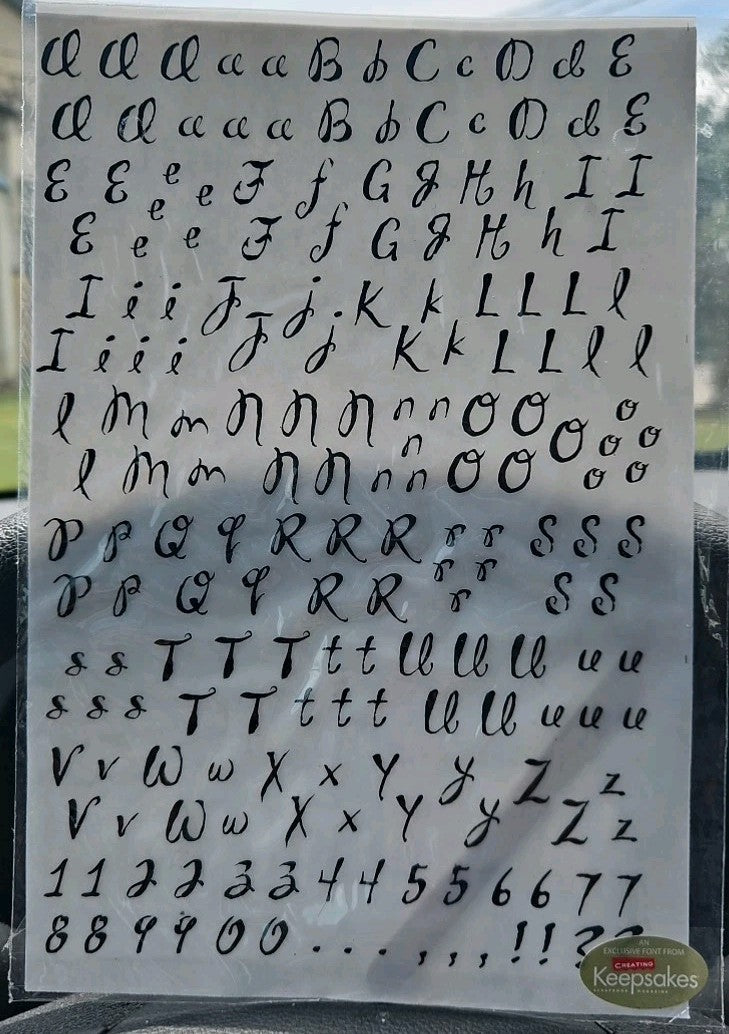 a a a a a B b C c D d E
a a a a a B b C c D d E
E E e e e F f G g H h I I
E e e F f G g H h I
I i i J j K k L L L l
I i i i J j K k L L l l
l M m n n n n n n O O O o o o
l M m n n n n O O o o
P p Q q R R R r r S S S
P p Q q R R r r r S S
s s T T T t t U U U u u
s s s T T t t t U U u u u
V v W w X x Y y Z z
V v W w X x Y y Z z
1 1 2 2 3 3 4 4 5 5 6 6 7 7
8 8 9 9 0 0 . . . , , , ! ! ? ?
AN
EXCLUSIVE FONT FROM
CREATING
Keepsakes
SCRAPBOOK MAGAZINE